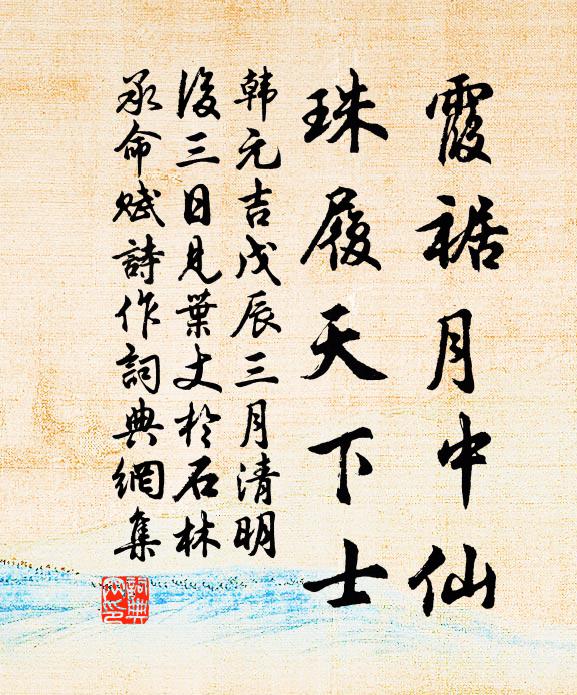 霞裾月中仙
珠履天下士
韩元吉戊辰三月清明
後三日見葉丈於石林
承命赋詩作詞典網集